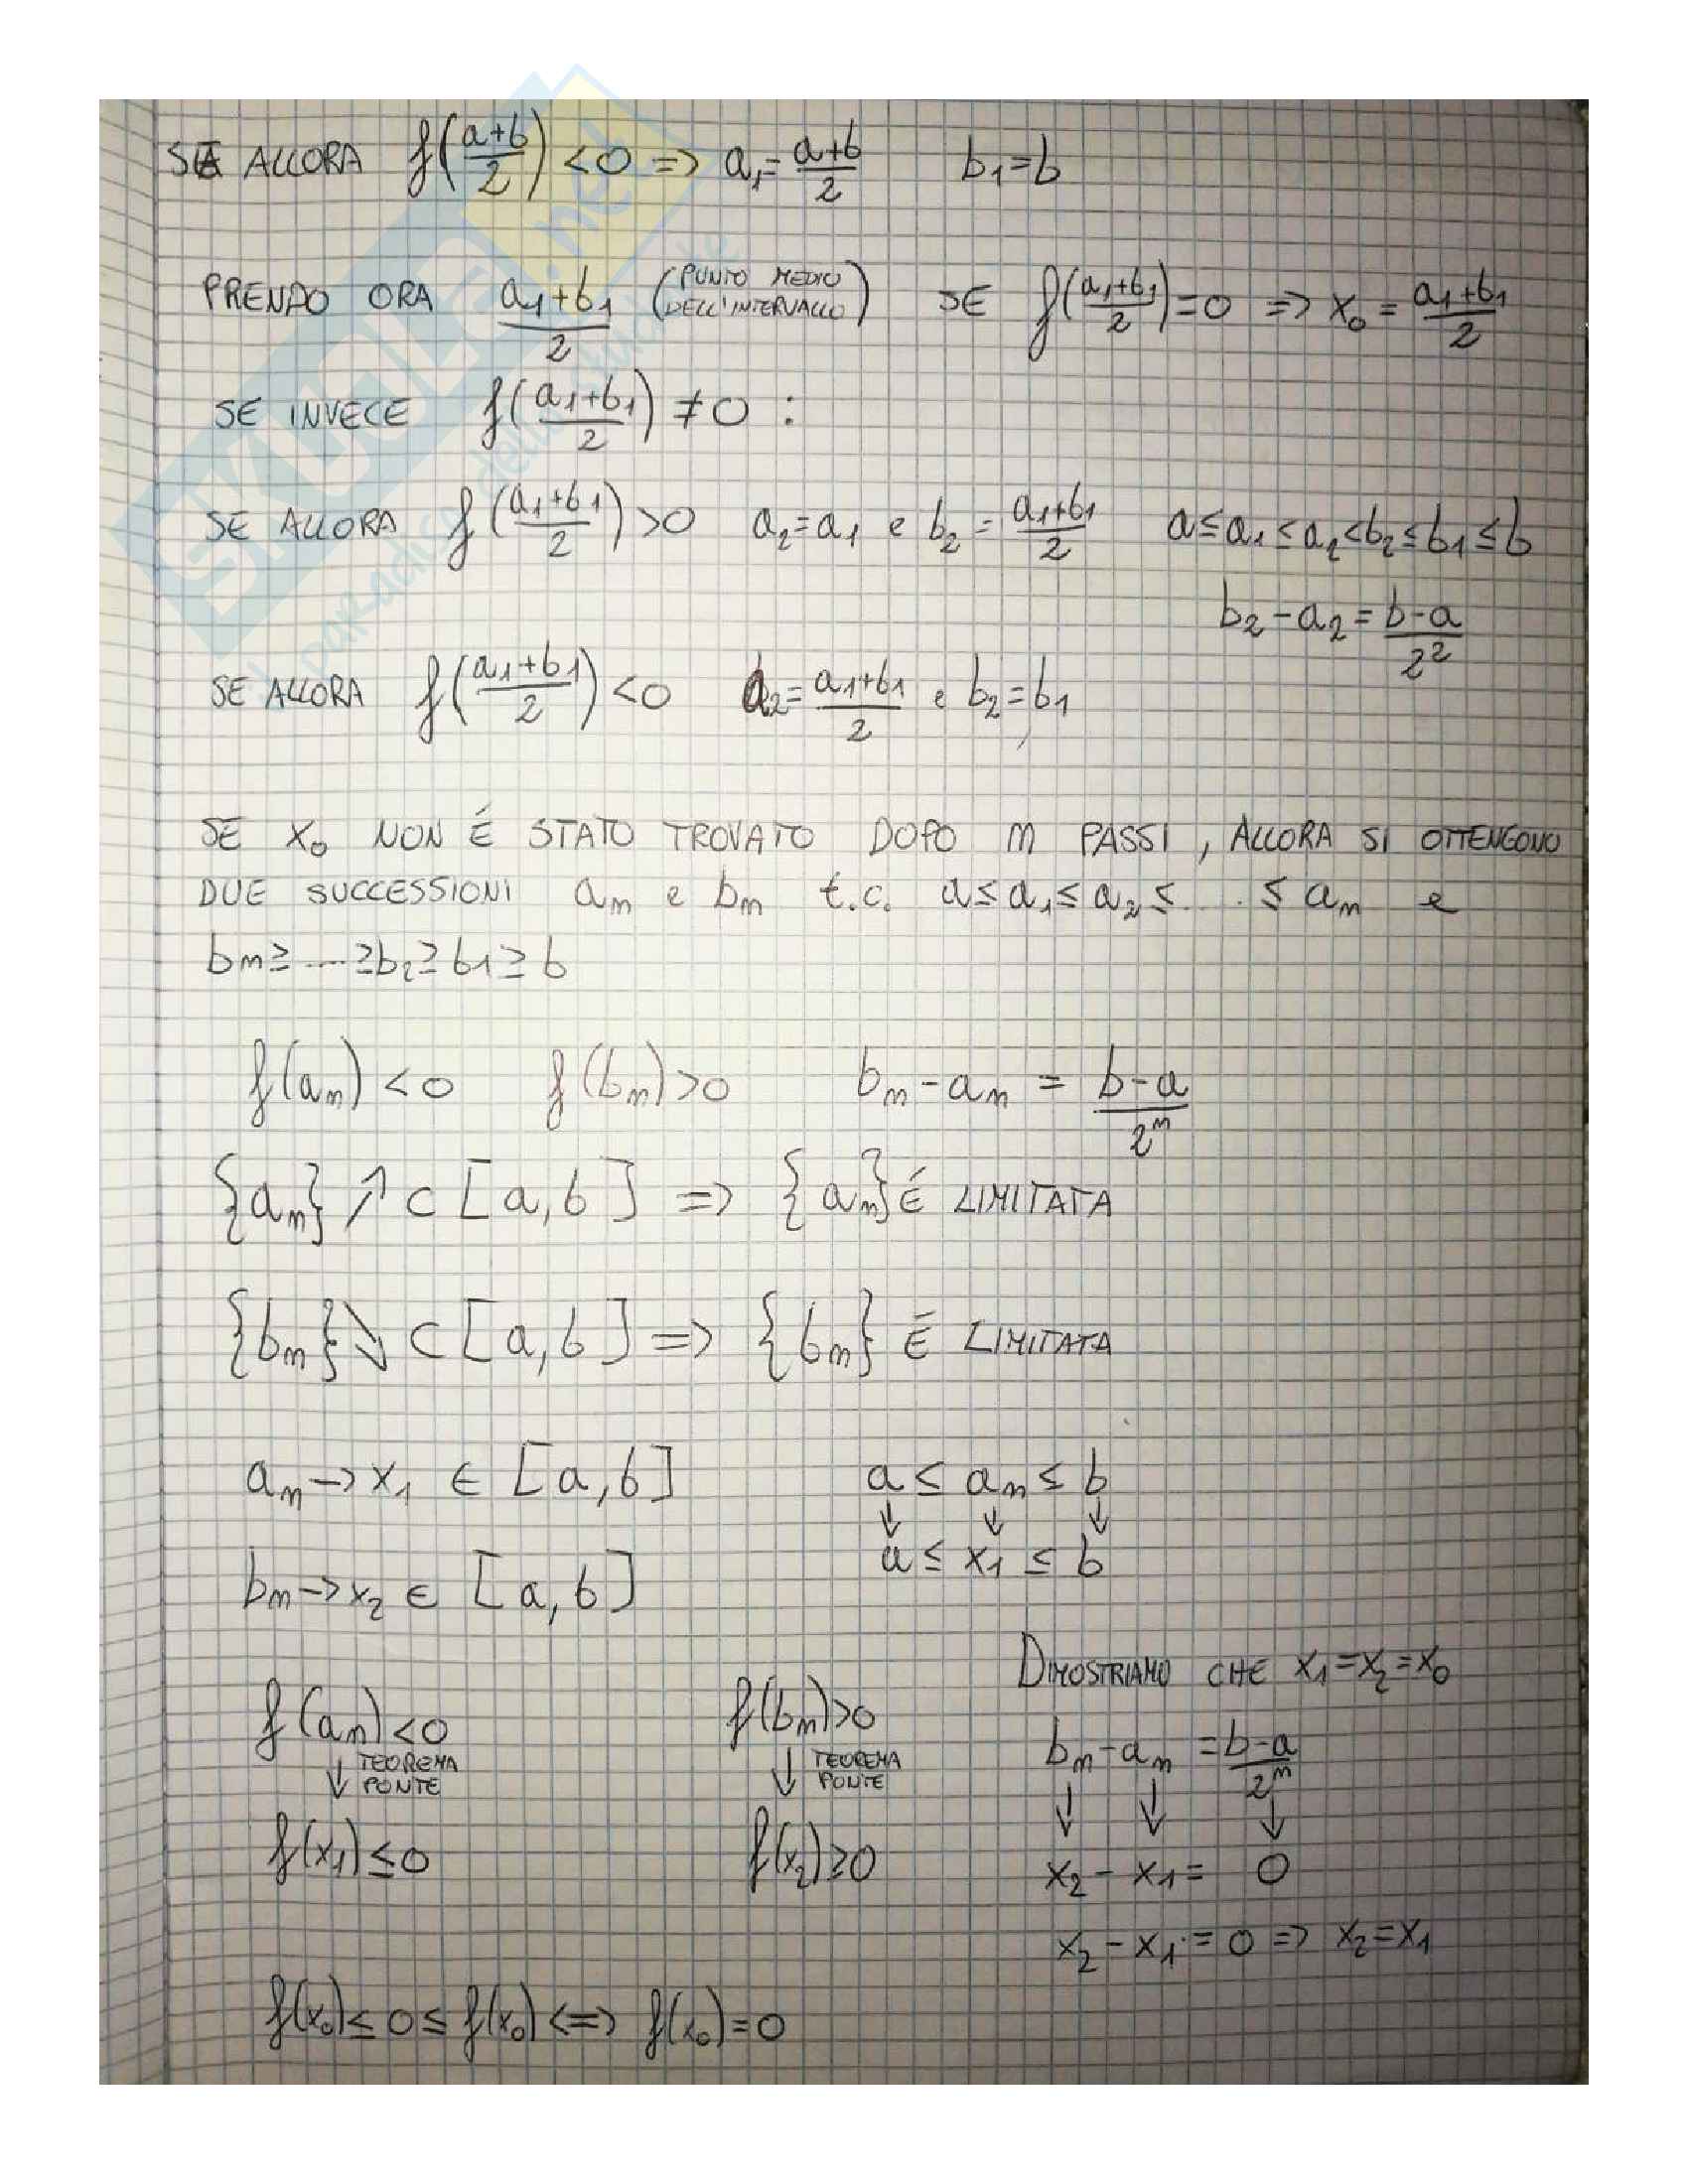 SE ALLORA f((a+b)/2) < 0 => a₁ = (a+b)/2 b₁ = b
PRENDO ORA (a₁+b₁)/2 (PUNTO MEDIO DELL'INTERVALLO) SE f((a₁+b₁)/2) = 0 => x₀ = (a₁+b₁)/2
SE INVECE f((a₁+b₁)/2) ≠ 0 :
SE ALLORA f((a₁+b₁)/2) > 0 a₂ = a₁ e b₂ = (a₁+b₁)/2 a ≤ a₁ ≤ a₂ < b₂ ≤ b₁ ≤ b
b₂ - a₂ = (b-a)/2²
SE ALLORA f((a₁+b₁)/2) < 0 a₂ = (a₁+b₁)/2 e b₂ = b₁
SE x₀ NON É STATO TROVATO DOPO n PASSI, ALLORA SI OTTENGONO
DUE SUCCESSIONI aₙ e bₙ t.c. a ≤ a₁ ≤ a₂ ≤ .... ≤ aₙ e
bₙ ≥ .... ≥ b₂ ≥ b₁ ≥ b
f(aₙ) < 0 f(bₙ) > 0 bₙ - aₙ = (b-a)/2ⁿ
{aₙ} ↗ ⊂ [a,b] => {aₙ} É LIMITATA
{bₙ} ↘ ⊂ [a,b] => {bₙ} É LIMITATA
aₙ -> x₁ ∈ [a,b] a ≤ aₙ ≤ b
↓ ↓ ↓
a ≤ x₁ ≤ b
bₙ -> x₂ ∈ [a,b]
DIMOSTRIAMO CHE x₁ = x₂ = x₀
f(aₙ) < 0 f(bₙ) > 0 bₙ - aₙ = (b-a)/2ⁿ
↓ TEOREMA PONTE ↓ TEOREMA PONTE ↓ ↓ ↓
f(x₁) ≤ 0 f(x₂) ≥ 0 x₂ - x₁ = 0
x₂ - x₁ = 0 => x₂ = x₁
f(x₀) ≤ 0 ≤ f(x₀) <=> f(x₀) = 0
SKUOLA.net
il paradiso dello studente